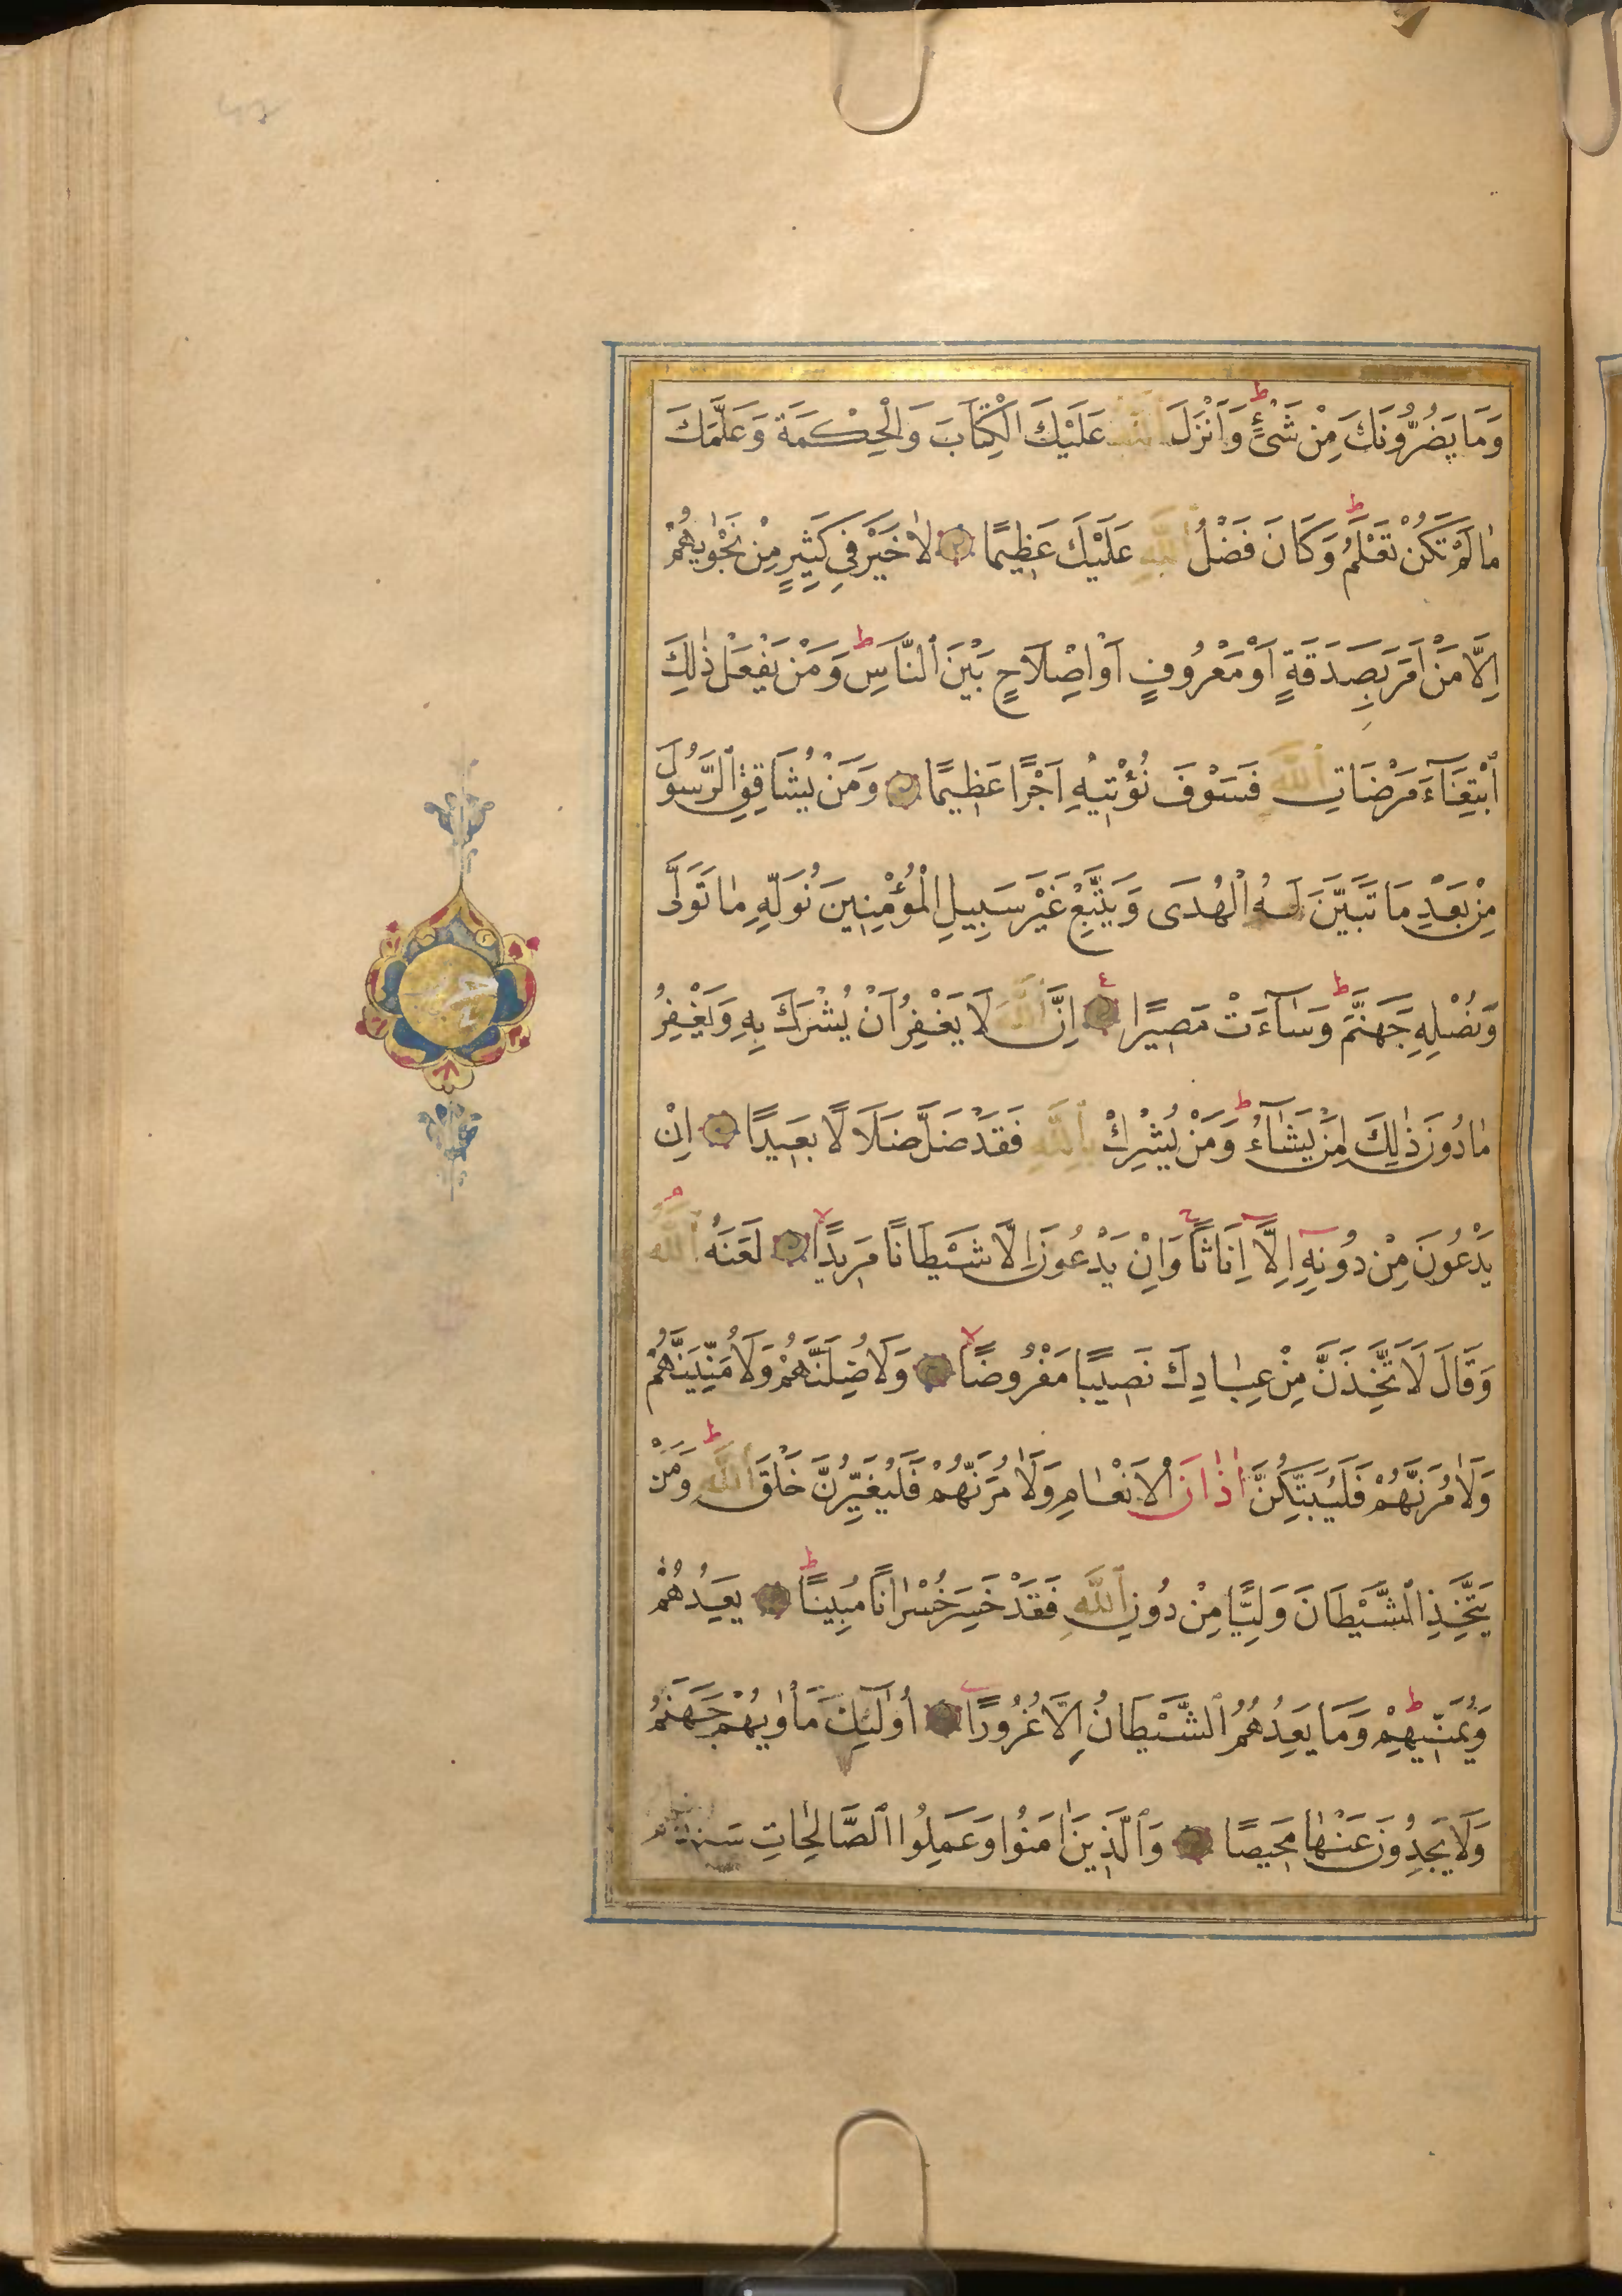 وَمَا يَضُرُّونَكَ مِنْ شَیْءٍ ط وَاَنْزَلَ اللّٰهُ عَلَيْكَ الْكِتَابَ وَالْحِكْمَةَ وَعَلَّمَكَ
مٰا لَمْ تَكُنْ تَعْلَمُ ط وَكَانَ فَضْلُ اللّٰهِ عَلَيْكَ عَظِيمًا لٰا خَيْرَ فِي كَثِيرٍ مِنْ نَجْوٰيهُمْ
اِلَّا مَنْ اَمَرَ بِصَدَقَةٍ اَوْ مَعْرُوفٍ اَوْ اِصْلَاحٍ بَيْنَ ٱلنَّاسِ ط وَمَنْ يَفْعَلْ ذٰلِكَ
ٱبْتِغَآءَ مَرْضَاتِ ٱللّٰهِ فَسَوْفَ نُؤْتِيهِ اَجْرًا عَظِيمًا وَمَنْ يُشَاقِقِ ٱلرَّسُولَ
مِنْ بَعْدِ مَا تَبَيَّنَ لَهُ ٱلْهُدَى وَيَتَّبِعْ غَيْرَ سَبِيلِ الْمُؤْمِنِينَ نُوَلِّهِ مٰا تَوَلَّى
وَنُصْلِهِ جَهَنَّمَ ط وَسٰآءَتْ مَصِيرًا ع اِنَّ ٱللّٰهَ لَا يَغْفِرُ اَنْ يُشْرَكَ بِهِ وَيَغْفِرُ
مٰا دُونَ ذٰلِكَ لِمَنْ يَشٰآءُ ط وَمَنْ يُشْرِكْ بِٱللّٰهِ فَقَدْ ضَلَّ ضَلَالًا بَعِيدًا اِنْ
يَدْعُونَ مِنْ دُونِهِ اِلَّا اِنَاثًا ج وَاِنْ يَدْعُونَ اِلَّا شَيْطَانًا مَرِيدًا لا لَعَنَهُ ٱللّٰهُ م
وَقَالَ لَاَتَّخِذَنَّ مِنْ عِبٰادِكَ نَصِيبًا مَفْرُوضًا لا وَلَاُضِلَّنَّهُمْ وَلَاُمَنِّيَنَّهُمْ
وَلَاٰمُرَنَّهُمْ فَلَيُبَتِّكُنَّ اٰذٰانَ ٱلْاَنْعٰامِ وَلَاٰمُرَنَّهُمْ فَلَيُغَيِّرُنَّ خَلْقَ ٱللّٰهِ ط وَمَنْ
يَتَّخِذِ ٱلشَّيْطَانَ وَلِيًّا مِنْ دُونِ ٱللّٰهِ فَقَدْ خَسِرَ خُسْرٰانًا مُبِينًا ط يَعِدُهُمْ
وَيُمَنِّيهِمْ ط وَمَا يَعِدُهُمُ ٱلشَّيْطَانُ اِلَّا غُرُورًا اُولٰٓئِكَ مَأْوٰيهُمْ جَهَنَّمُ
وَلَا يَجِدُونَ عَنْهٰا مَحِيصًا وَٱلَّذِينَ اٰمَنُوا وَعَمِلُوا ٱلصَّالِحٰاتِ